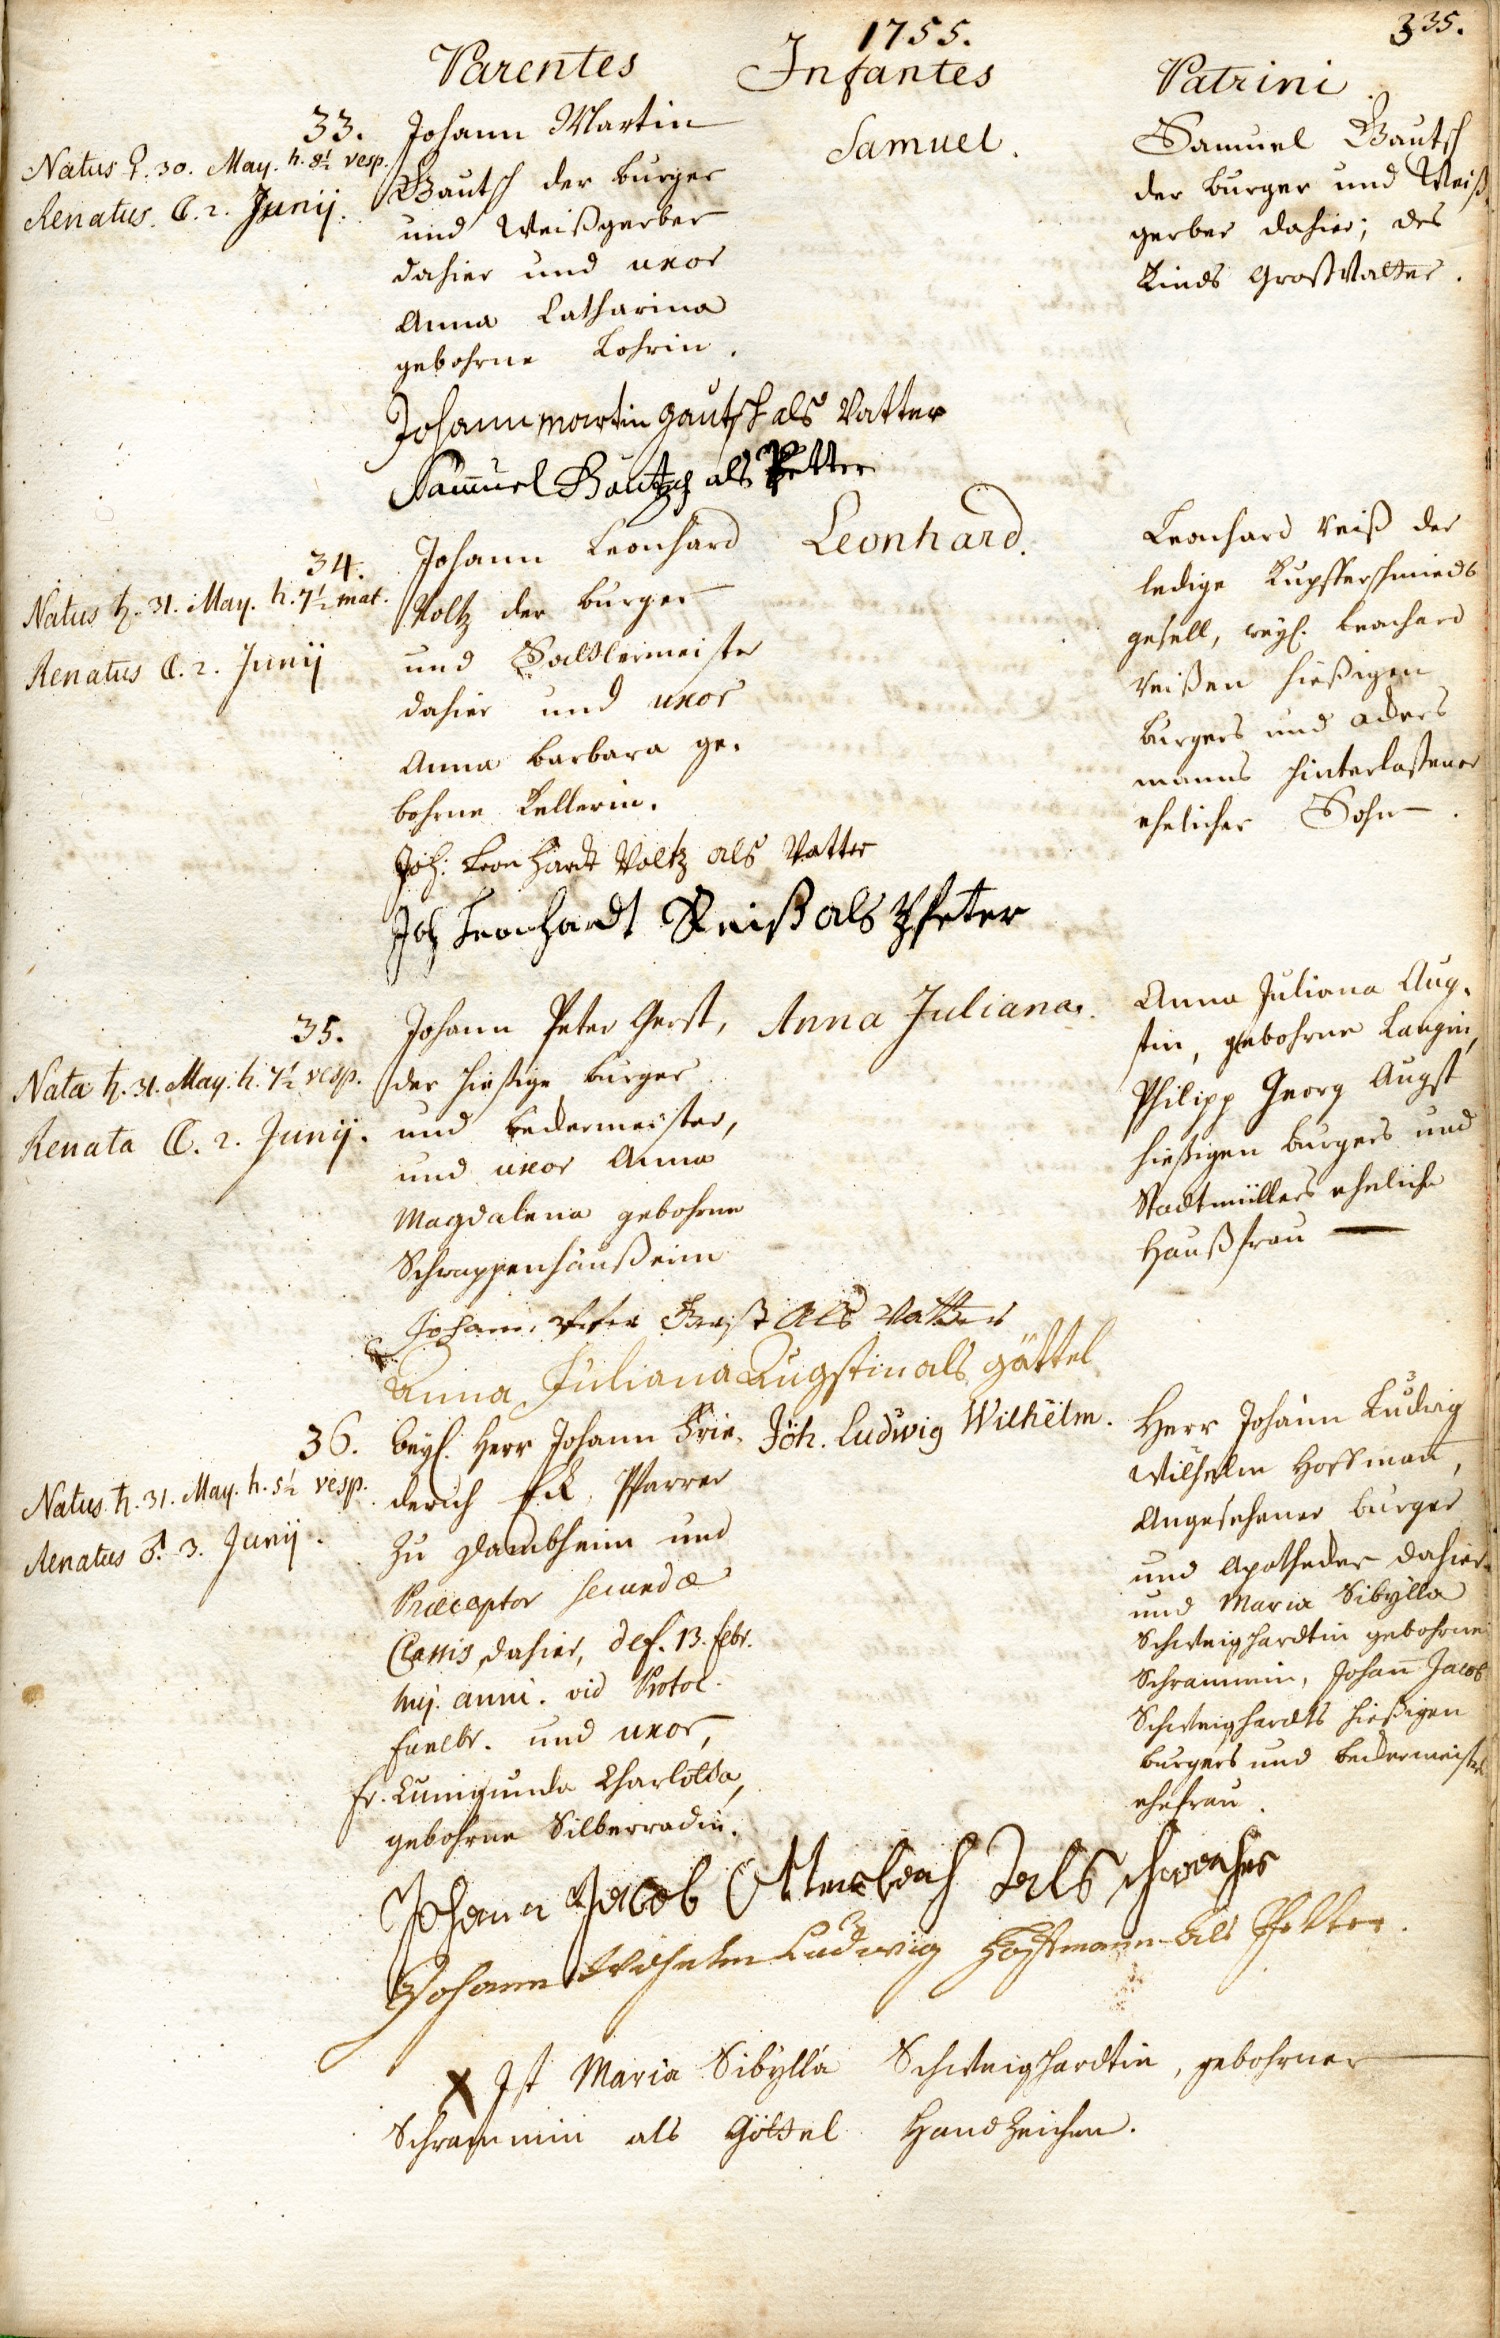 1755.
335.
Parentes Infantes Patrini
33.
Natus ♀. 30. May. h. 8½ vesp.
Renatus. ☾. 2. Junij.
Johann Martin
Gautsch der burger
und Weißgerber
dahier und uxor
Anna Catharina
gebohrne Lohrin.
Samuel.
Samuel Gautsch
der burger und Weiß-
gerber dahier; des
Kinds GroßVatter.
Johann martin gautsch als Vatter
Samuel Gautsch als Petter
34.
Natus ♄. 31. May. h. 7½ mat.
Renatus ☾. 2. Junij
Johann Leonhard
Voltz der burger
und Sattlermeister
dahier und uxor
Anna barbara ge-
bohrne Kellerin.
Leonhard.
Leonhard Reiß der
ledige Kupfferschmieds
gesell, weyl. Leonhard
Reißen hießigen
burgers und Ackers
manns hinterlaßener
ehelicher Sohn.
Joh: Leonhardt Voltz als Vatter
Joh Leonhardt Reiß als Pfeter
35.
Nata ♄. 31. May. h. 7½ vesp.
Renata ☾. 2. Junij.
Johann Peter Gerst,
der hießige burger
und beckermeister,
und uxor Anna
Magdalena gebohrne
Schwappenhäußerin
Anna Juliana.
Anna Juliana Aug-
stin, gebohrne Langin,
Philipp Georg Augst
hießigen burgers und
Stadtmüllers eheliche
Haußfrau
Johann Peter Gerst als Vatter
Anna Juliana Augstin als göttel
36.
Natus ♄. 31. May. h. 5½ vesp.
Renatus ♂. 3. Junij.
weyl. Herr Johann Frie-
derich Eck, Pfarrer
zu Dambheim und
Præceptor secundæ
Classis dahier, def. 13. febr.
huj. anni. vid Protoc.
funebr. und uxor,
fr. Cunigunda Charlotta,
gebohrne Silberradin.
Joh. Ludwig Wilhelm.
Herr Johann Ludwig
Wilhelm Hoffman,
Angesehener burger
und Apothecker dahier
und Maria Sibylla
Schweighardtin gebohrne
Schrammin, Johann Jacob
Schweighardts hießigen
burgers und beckermeisters
ehefrau.
Johann Jacob als
Johann Wilhelm Ludwig Hoffmann als Petter.
X Ist Maria Sibylla Schweighardtin, gebohrner
Schrammin als Göttel Handzeichen.